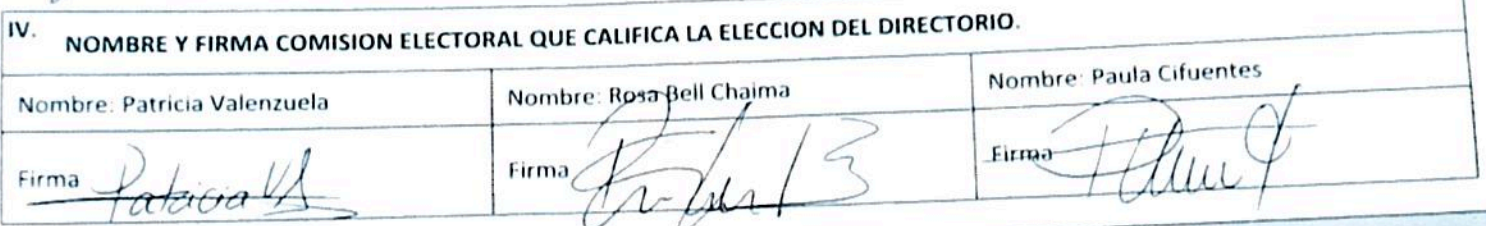 IV. NOMBRE Y FIRMA COMISION ELECTORAL QUE CALIFICA LA ELECCION DEL DIRECTORIO.
Nombre: Patricia Valenzuela
Nombre: Rosa Bell Chaima
Nombre: Paula Cifuentes
Firma Patricia V
Firma
Firma